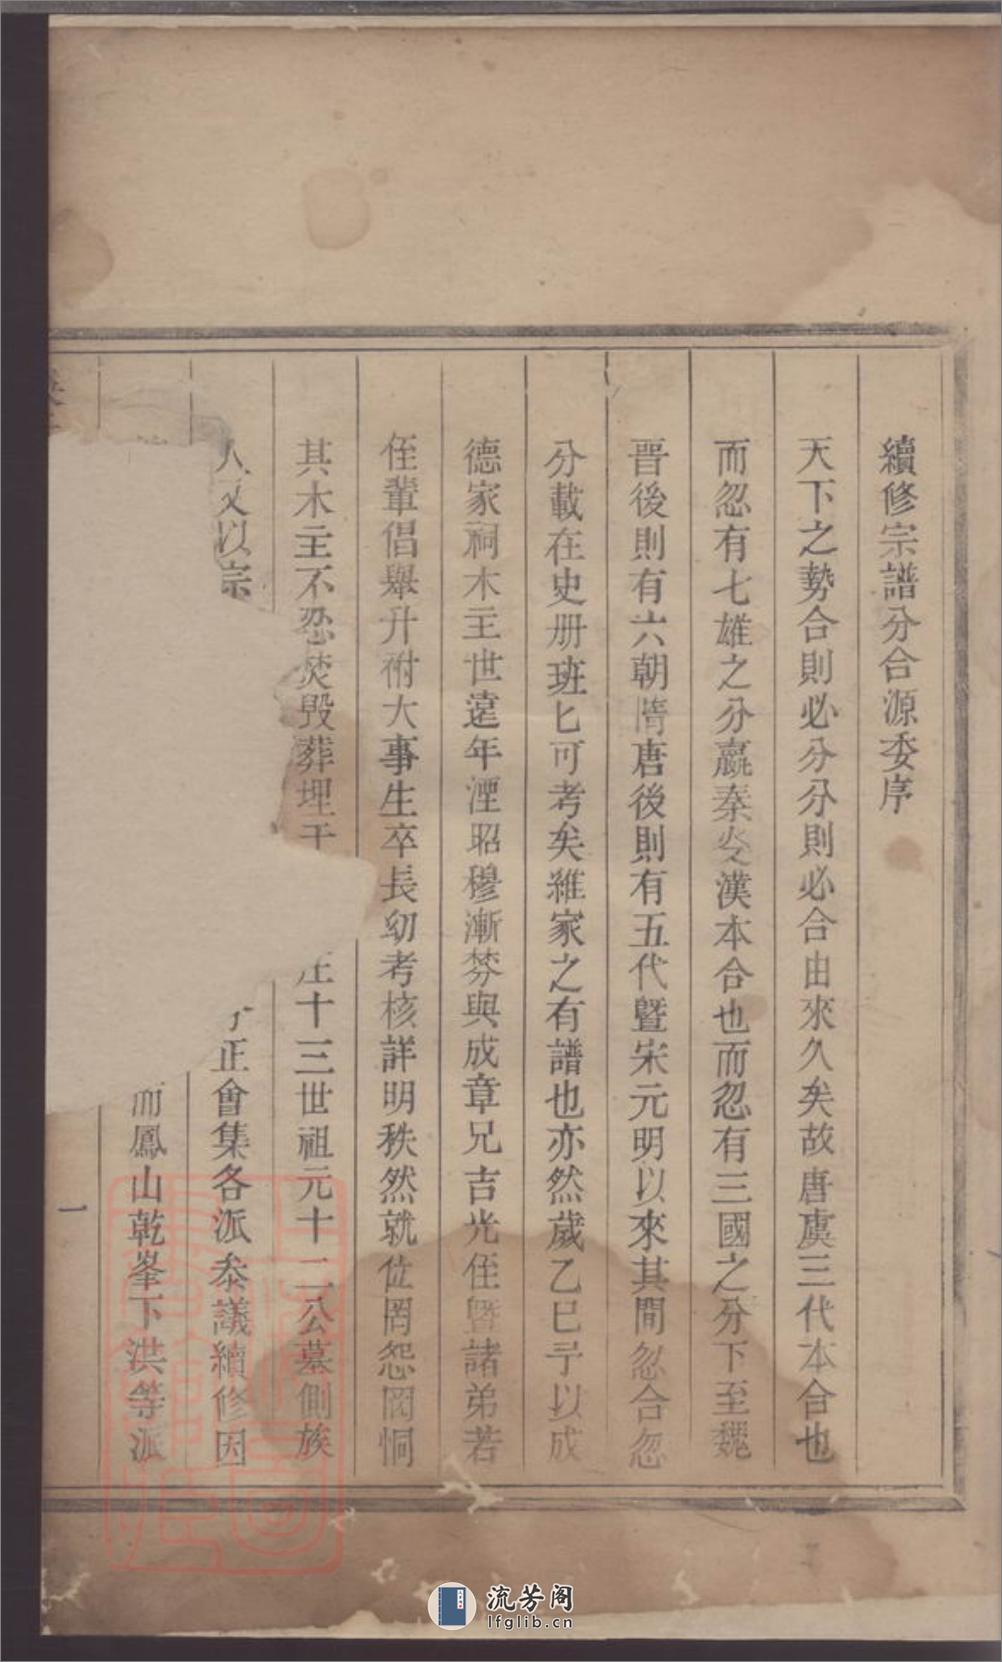 續修宗譜分合源委序
天下之勢合則必分分則必合由來久矣故唐虞三代本合也
而忽有七雄之分嬴秦炎漢本合也而忽有三國之分下至魏
晋後則有六朝隋唐後則有五代暨宋元明以來其間忽合忽
分載在史册班匕可考矣維家之有譜也亦然歲乙巳予以成
德家祠木主世遠年湮昭穆漸棼與成章兄吉光侄暨諸弟若
侄輩倡舉升祔大事生卒長幼考核詳明秩然就位罔怨罔恫
其木主不忍焚毀葬埋于 十三世祖元十二公墓側族
人又以宗 正會集各派叅議續修因
而鳳山乾峯下洪等派
一
流芳阁
lfglib.cn